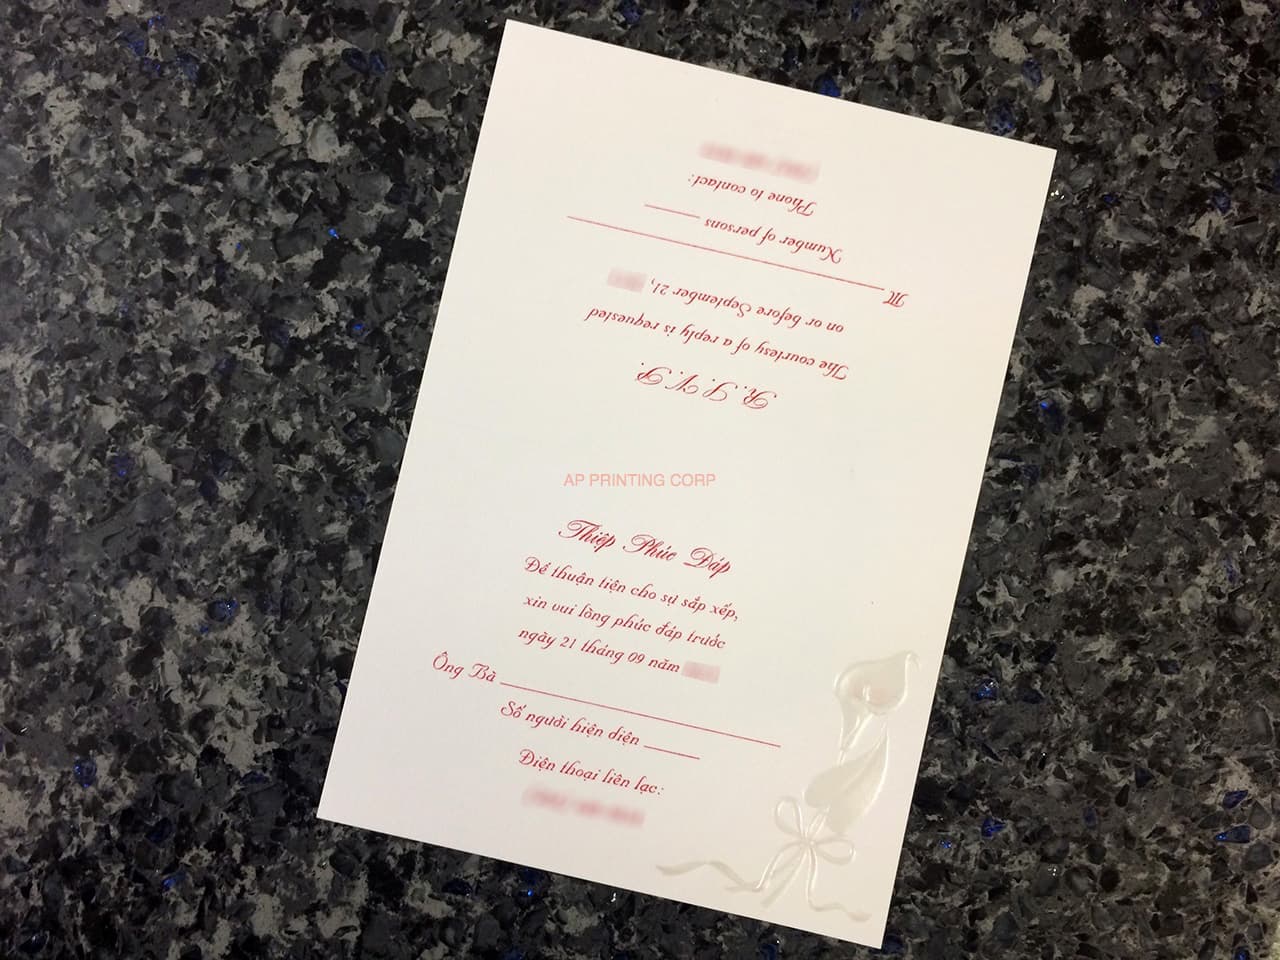 R.S.V.P.
The courtesy of a reply is requested
on or before September 21,
M
Number of persons
Phone to contact:
AP PRINTING CORP
Thiệp Phúc Đáp
Để thuận tiện cho sự sắp xếp,
xin vui lòng phúc đáp trước
ngày 21 tháng 09 năm
Ông Bà
Số người hiện diện
Điện thoại liên lạc: